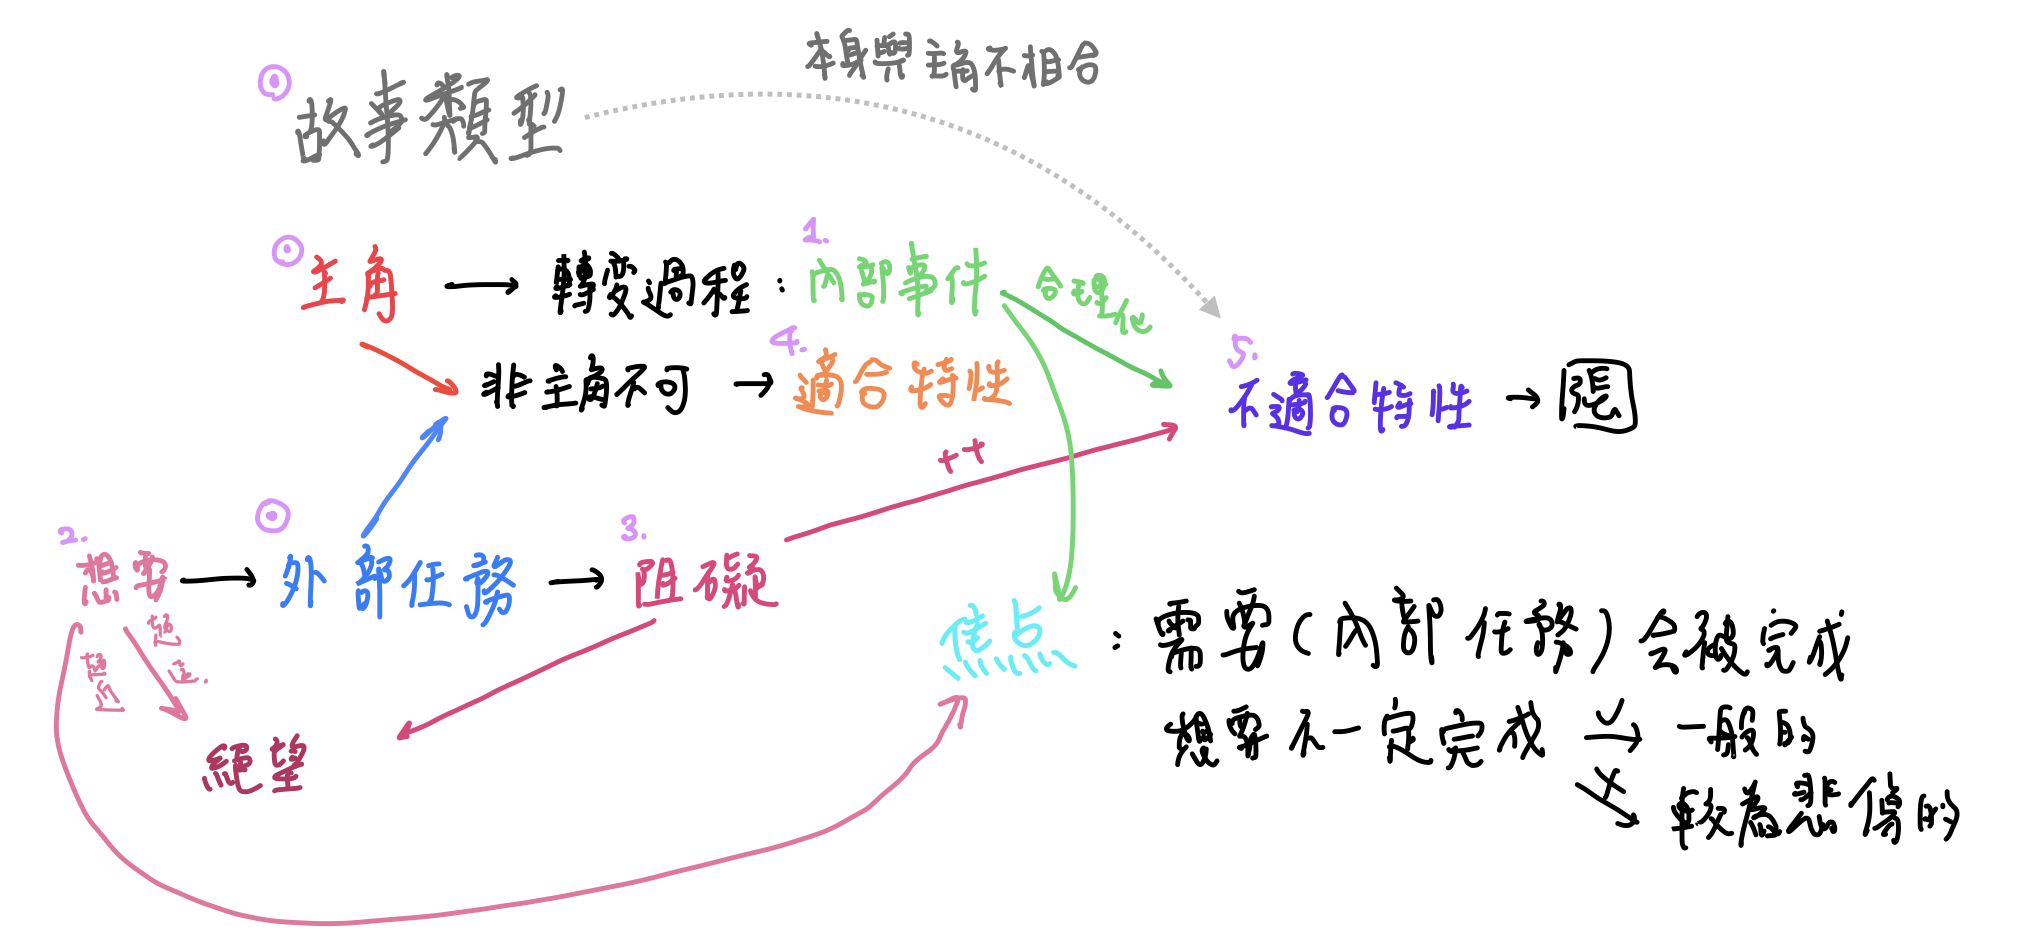 本身與主角不相合
故事類型
主角 → 轉变過程：內部事件 合理化
1.
非主角不可 → 適合特性
4.
5.
不適合特性 →
++
2.
想要 → 外部任務 → 阻礙
3.
越
絕望
焦点：需要(內部任務)会被完成
想要不一定完成 → 一般的
較為悲傷的